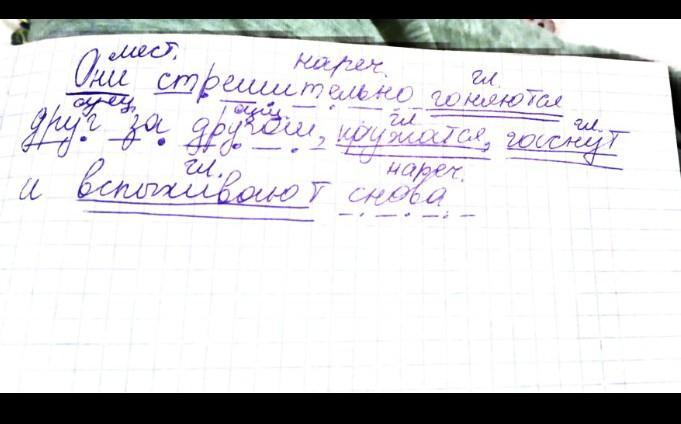 мест. нареч. гл.
Они стремительно гоняются
сущ. сущ. гл. гл.
друг за другом, кружатся, гаснут
гл. нареч.
и вспыхивают снова